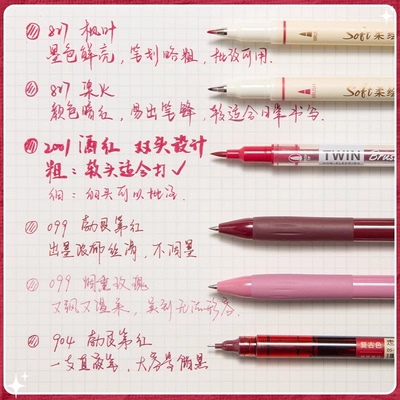 807 枫叶
墨色鲜亮，笔划略粗，批改可用.
807 柴火
颜色暗红，易出笔锋，较适合日常书写
2001 酒红 双头设计
粗：软头适合打✓
细：细头可以批注.
099 勃艮第红
出墨浓郁丝滑，不洇墨
099 烟熏玫瑰
又飒又温柔，
904 勃艮第红
一支直液笔，大容量储墨
Soft 柔绘
Soft 柔绘
TWIN
Brush
复古色